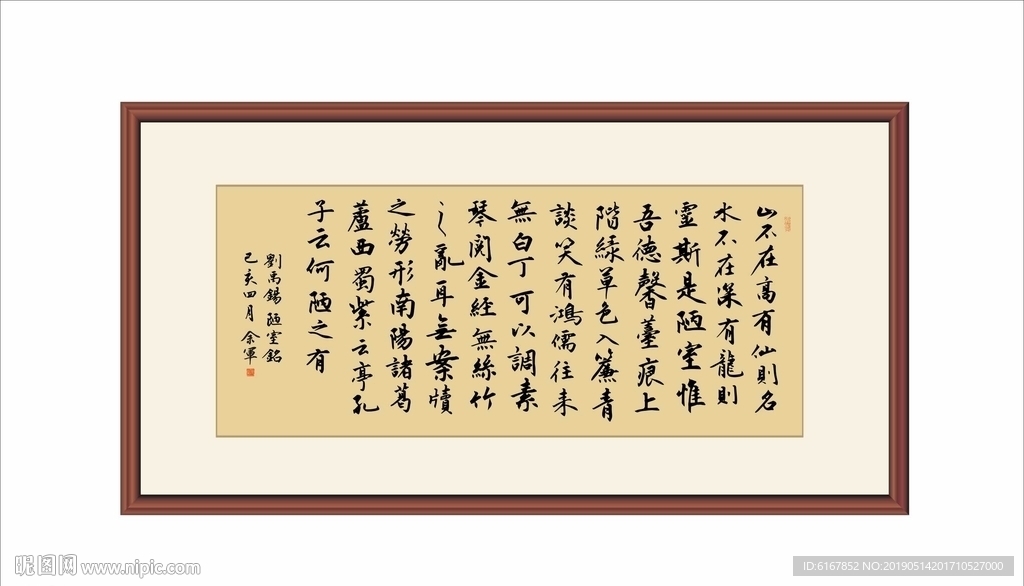 山不在高有仙則名
水不在深有龍則
靈斯是陋室惟
吾德馨薹痕上
階緑草色入簾青
談笑有鴻儒往来
無白丁可以調素
琴閲金経無絲竹
之亂耳無案牘
之勞形南陽諸葛
蘆西蜀紫云亭孔
子云何陋之有
劉禹錫 陋室銘
己亥四月 余軍
昵图网 www.nipic.com
ID:6167852 NO:20190514201710527000